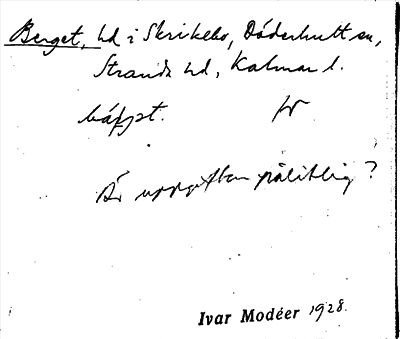 Berget, hd i Skrikebo, Döderhult sn,
Strands hd, Kalmar l.
Är uppgiften pålitlig?
Ivar Modéer 1928.